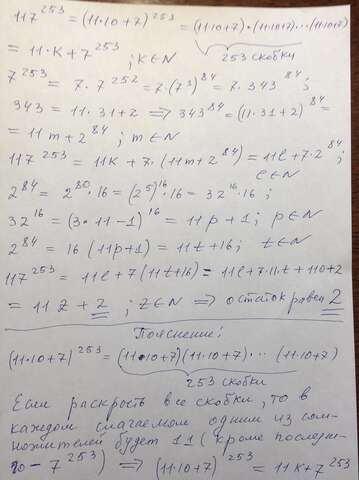 117^253 = (11·10+7)^253 = (11·10+7)·(11·10+7)·...(11·10+7)
253 скобки
= 11·K + 7^253 ; K∈N
7^253 = 7·7^252 = 7·(7^3)^84 = 7·343^84 ;
343 = 11·31+2 ⇒ 343^84 = (11·31+2)^84 =
= 11m + 2^84 ; m∈N
117^253 = 11K + 7·(11m+2^84) = 11l + 7·2^84 ;
l∈N
2^84 = 2^80·16 = (2^5)^16·16 = 32^16·16 ;
32^16 = (3·11-1)^16 = 11p+1 ; p∈N
2^84 = 16(11p+1) = 11t+16 ; t∈N
117^253 = 11l+7(11t+16) = 11l+7·11·t+110+2
= 11z+2 ; z∈N ⇒ остаток равен 2
Пояснение!
(11·10+7)^253 = (11·10+7)(11·10+7)·...(11·10+7)
253 скобки
Если раскрыть все скобки, то в
каждом слагаемом одним из сом-
ножителей будет 11 (кроме последне-
го - 7^253) ⇒ (11·10+7)^253 = 11K+7^253